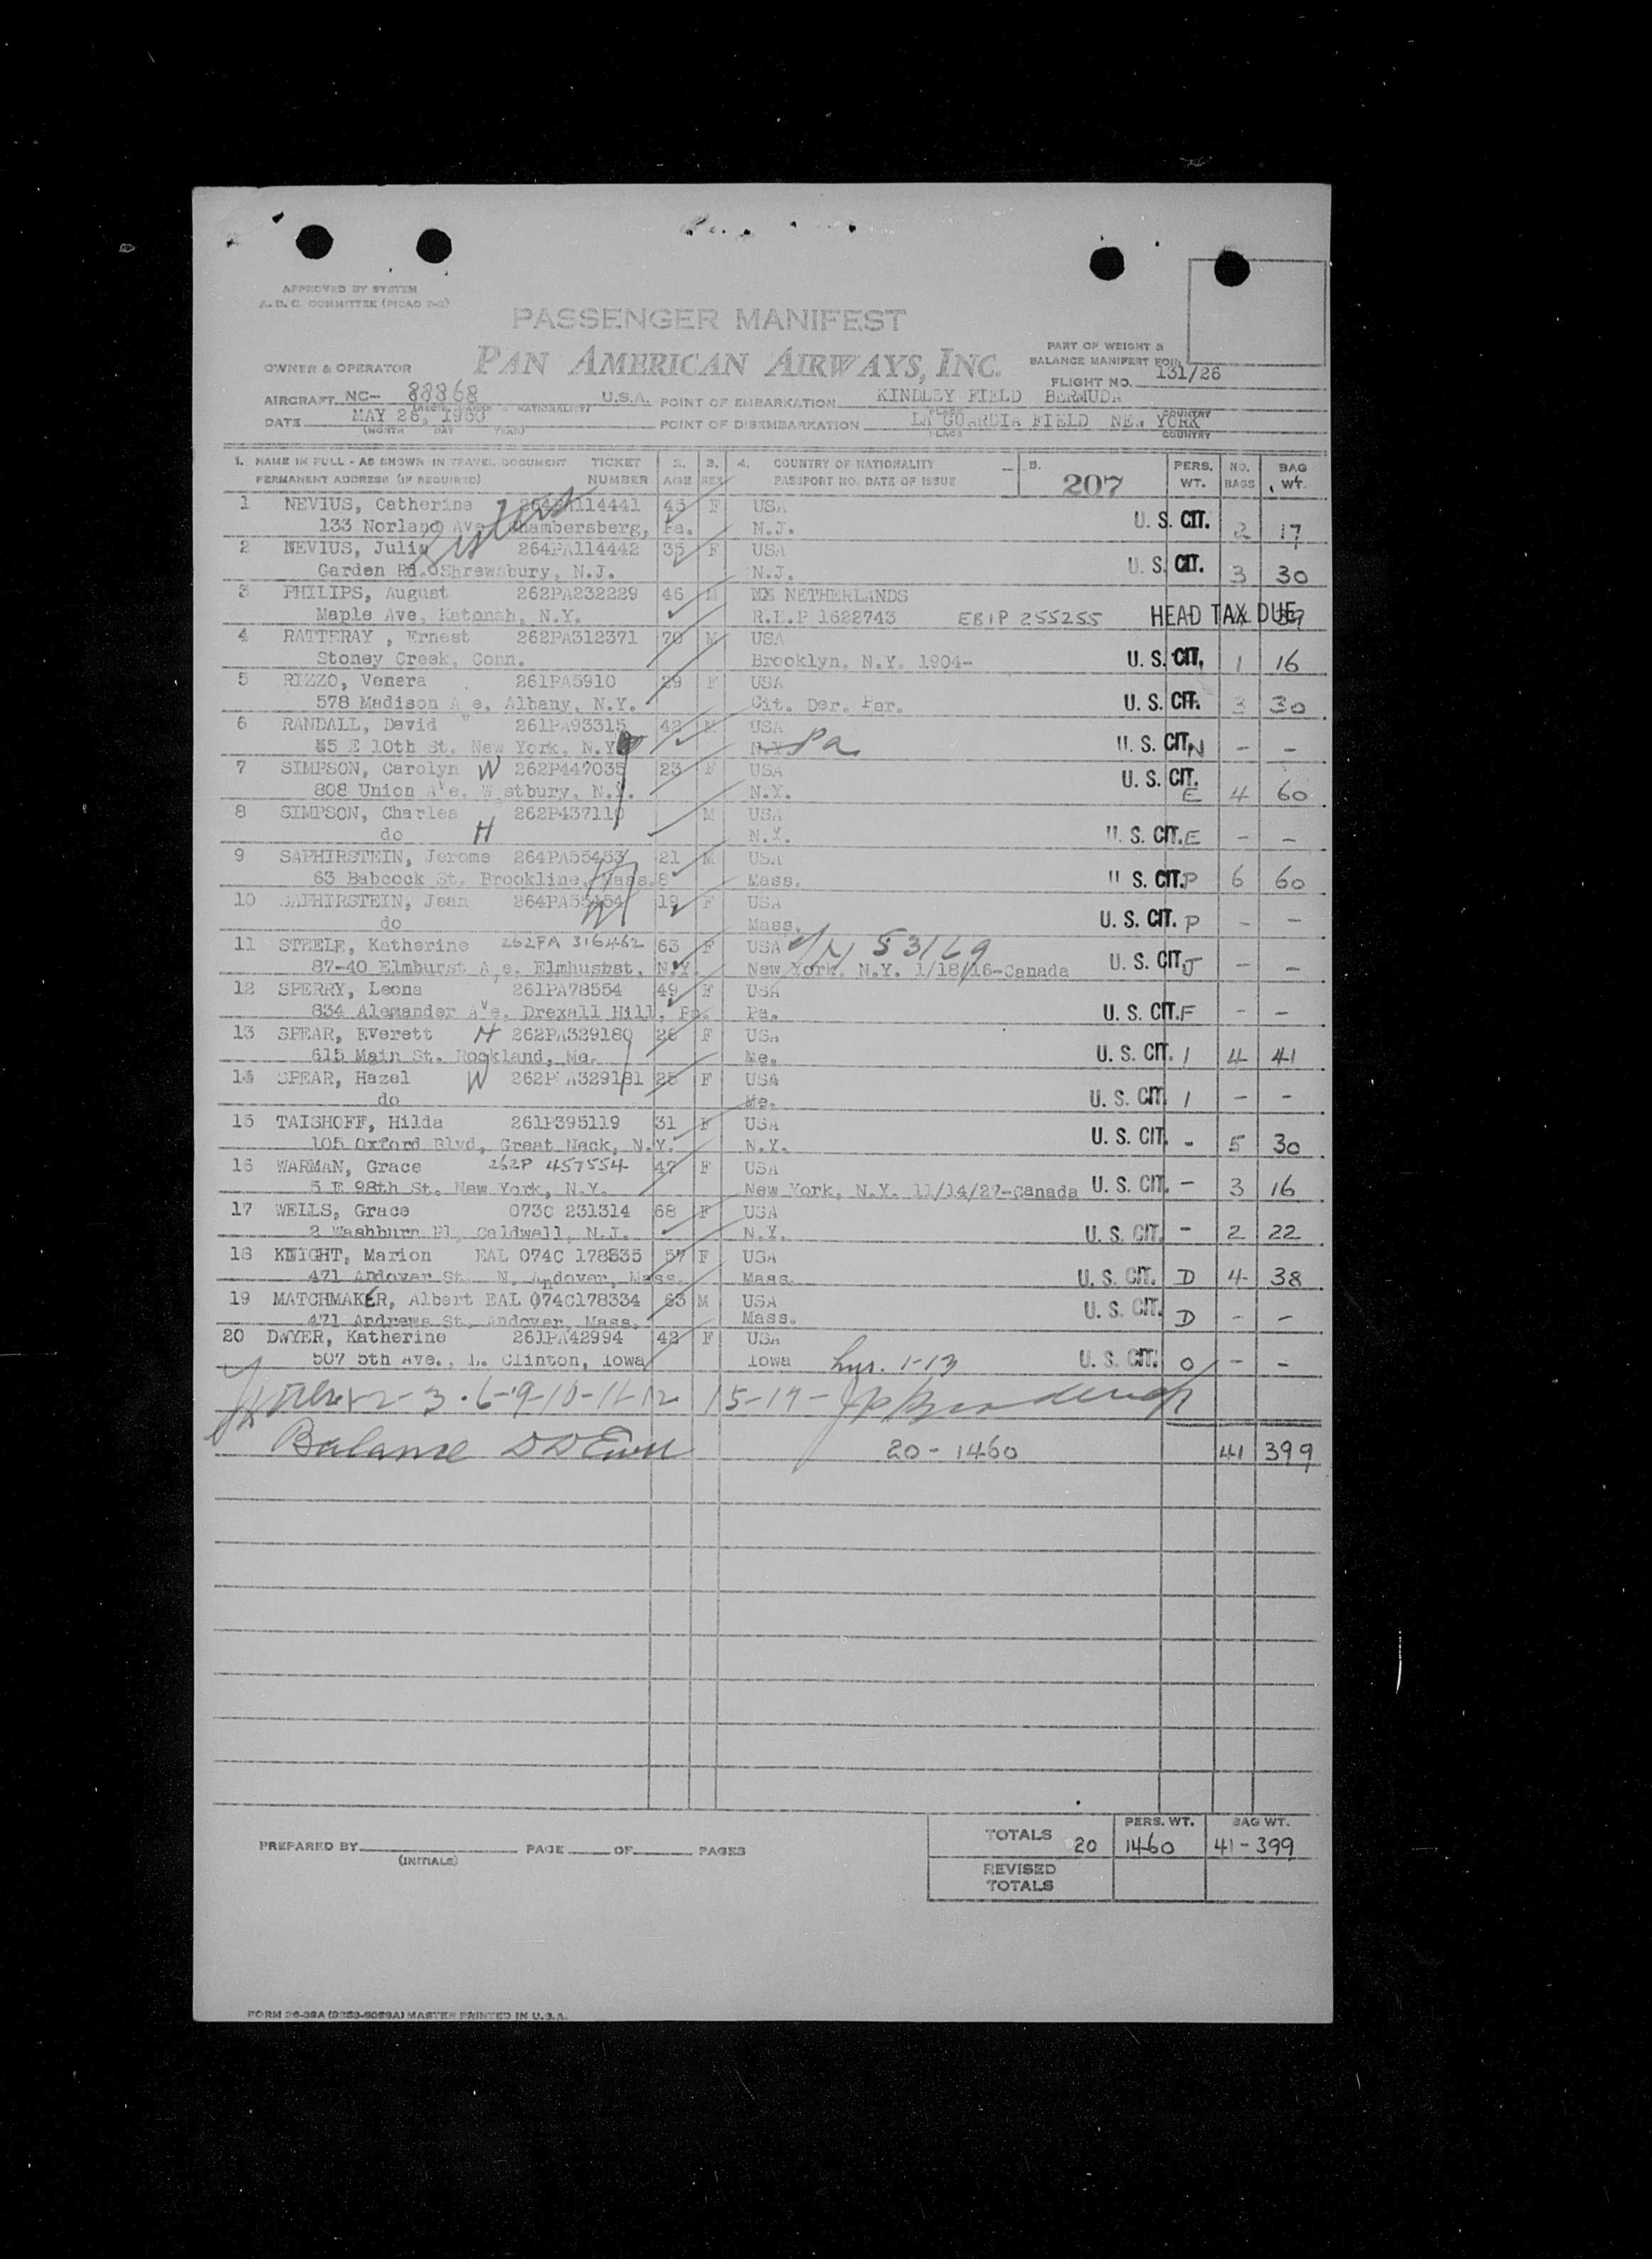 APPROVED BY SYSTEM
A. D. C. COMMITTEE (PICAO 2-2)
PASSENGER MANIFEST
PAN AMERICAN AIRWAYS, INC.
PART OF WEIGHT &
BALANCE MANIFEST FOR
OWNER & OPERATOR
FLIGHT NO. 131/26
AIRCRAFT NC- 88868 U.S.A. POINT OF EMBARKATION KINDLEY FIELD BERMUDA
DATE MAY 26, 1950 POINT OF DISEMBARKATION LA GUARDIA FIELD NEW YORK
(MONTH DAY YEAR) PLACE COUNTRY
1. NAME IN FULL - AS SHOWN IN TRAVEL DOCUMENT TICKET 2. 3. 4. COUNTRY OF NATIONALITY 5. PERS. NO. BAG
PERMANENT ADDRESS (IF REQUIRED) NUMBER AGE SEX PASSPORT NO. DATE OF ISSUE 207 WT. BAGS WT.
1 NEVIUS, Catherine 264PA114441 45 F USA
133 Norland Ave Chambersberg, Pa. N.J. U. S. CIT. 2 17
2 NEVIUS, Julia 264PA114442 35 F USA
Garden Rd. Shrewsbury, N.J. N.J. U. S. CIT. 3 30
3 PHILIPS, August 262PA232229 46 M NETHERLANDS
Maple Ave, Katonah, N.Y. R.E.P 1622743 EBIP 255255 HEAD TAX DUE
4 RATTERAY , Ernest 262PA312371 70 M USA
Stoney Creek, Conn. Brooklyn, N.Y. 1904- U. S. CIT. 1 16
5 RIZZO, Venera 261PA5910 29 F USA
578 Madison A e, Albany, N.Y. Cit. Der. Par. U. S. CIT. 3 30
6 RANDALL, David 261PA93315 42 M USA
55 E 10th St. New York, N.Y. N.Y. Pa U. S. CIT. N - -
7 SIMPSON, Carolyn W 262P447035 23 F USA
808 Union Ave. Westbury, N.Y. N.Y. U. S. CIT. E 4 60
8 SIMPSON, Charles 262P437110 M USA
do H N.Y. U. S. CIT. E - -
9 SAPHIRSTEIN, Jerome 264PA55453 21 M USA
63 Babcock St. Brookline, Mass.8 Mass. U. S. CIT. P 6 60
10 SAPHIRSTEIN, Jean 264PA55454 19 F USA
do Mass. U. S. CIT. P - -
11 STEELE, Katherine 262PA 316462 63 F USA C/N 53169
87-40 Elmburst Ave. Elmhusbst, N.Y. New York, N.Y. 1/18/16-Canada U. S. CIT. J - -
12 SPERRY, Leona 261PA78554 49 F USA
834 Alemander Ave. Drexall Hill, Pa. Pa. U. S. CIT. F - -
13 SPEAR, Everett H 262PA329180 26 F USA
615 Main St. Rockland, Me. Me. U. S. CIT. 1 4 41
14 SPEAR, Hazel W 262P A329181 25 F USA
do Me. U. S. CIT. 1 - -
15 TAISHOFF, Hilda 261P395119 31 F USA
105 Oxford Blvd, Great Neck, N.Y. N.Y. U. S. CIT. - 5 30
16 WARMAN, Grace 262P 457554 47 F USA
5 E 98th St. New York, N.Y. New York, N.Y. 11/14/27-Canada U. S. CIT. - 3 16
17 WELLS, Grace 073C 231314 68 F USA
2 Washburn Pl, Caldwell, N.J. N.Y. U. S. CIT. - 2 22
18 KNIGHT, Marion EAL 074C 178335 57 F USA
471 Andover St. N. Andover, Mass. Mass. U. S. CIT. D 4 38
19 MATCHMAKER, Albert EAL 074C178334 63 M USA
471 Andrews St. Andover, Mass. Mass. U. S. CIT. D - -
20 DWYER, Katherine 261PA42994 42 F USA
507 5th Ave., L. Clinton, Iowa Iowa U. S. CIT. O - -
2-3.6-9-10-11-12 15-17-
Balance 20-1460 41 399
TOTALS 20 PERS. WT. 1460 BAG WT. 41-399
PREPARED BY PAGE OF PAGES
(INITIALS)
REVISED
TOTALS
FORM 26-39A (9253-5059A) MASTER PRINTED IN U.S.A.